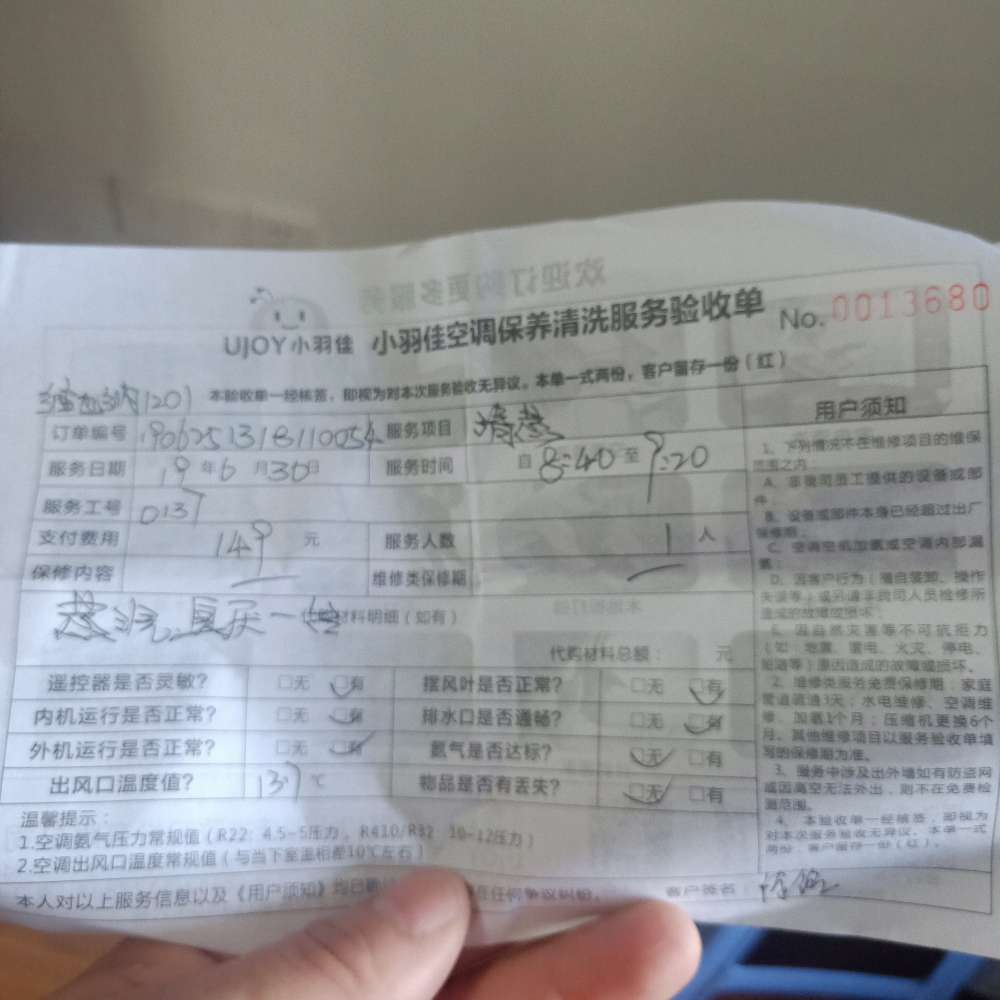 欢迎订购更多服务
UJOY小羽佳 小羽佳空调保养清洗服务验收单 No.0013680
本验收单一经核签，即视为对本次服务验收无异议。本单一式两份，客户留存一份（红）
订单编号 1906251318110054 服务项目
服务日期 19年6月30日 服务时间 自8:40至9:20
服务工号 0137
支付费用 149元 服务人数 1人
保修内容 维修类保修期
材料明细（如有）
代购材料总额： 元
遥控器是否灵敏？ □无 □有 摆风叶是否正常？ □无 □有
内机运行是否正常？ □无 □有 排水口是否通畅？ □无 □有
外机运行是否正常？ □无 □有 氨气是否达标？ □无 □有
出风口温度值？ 13.7℃ 物品是否有丢失？ □无 □有
温馨提示：
1.空调氨气压力常规值（R22：4.5-5压力，R410/R32 10-12压力）
2.空调出风口温度常规值（与当下室温相差10℃左右）
本人对以上服务信息以及《用户须知》均已确 任何争议纠纷。 客户签名：
用户须知
1、下列情况不在维修项目的维保
范围之内：
A、非我司员工提供的设备或部
件；
B、设备或部件本身已经超过出厂
保修期；
C、空调空机加氨或空调内部漏
氨；
D、因客户行为（擅自装卸、操作
失误等）或另请非我司人员检修所
造成的故障或损坏；
E、因自然灾害等不可抗拒力
（如：地震、雷电、火灾、停电、
短路等）原因造成的故障或损坏。
2、维修类服务免费保修期：家庭
管道疏通3天；水电维修、空调维
修、加氨1个月；压缩机更换6个
月。其他维修项目以服务验收单填
写的保修期为准。
3、服务中涉及出外墙如有防盗网
或因高空无法外出，则不在免费检
测范围。
4、本验收单一经核签，即视为
对本次服务验收无异议。本单一式
两份，客户留存一份（红）。